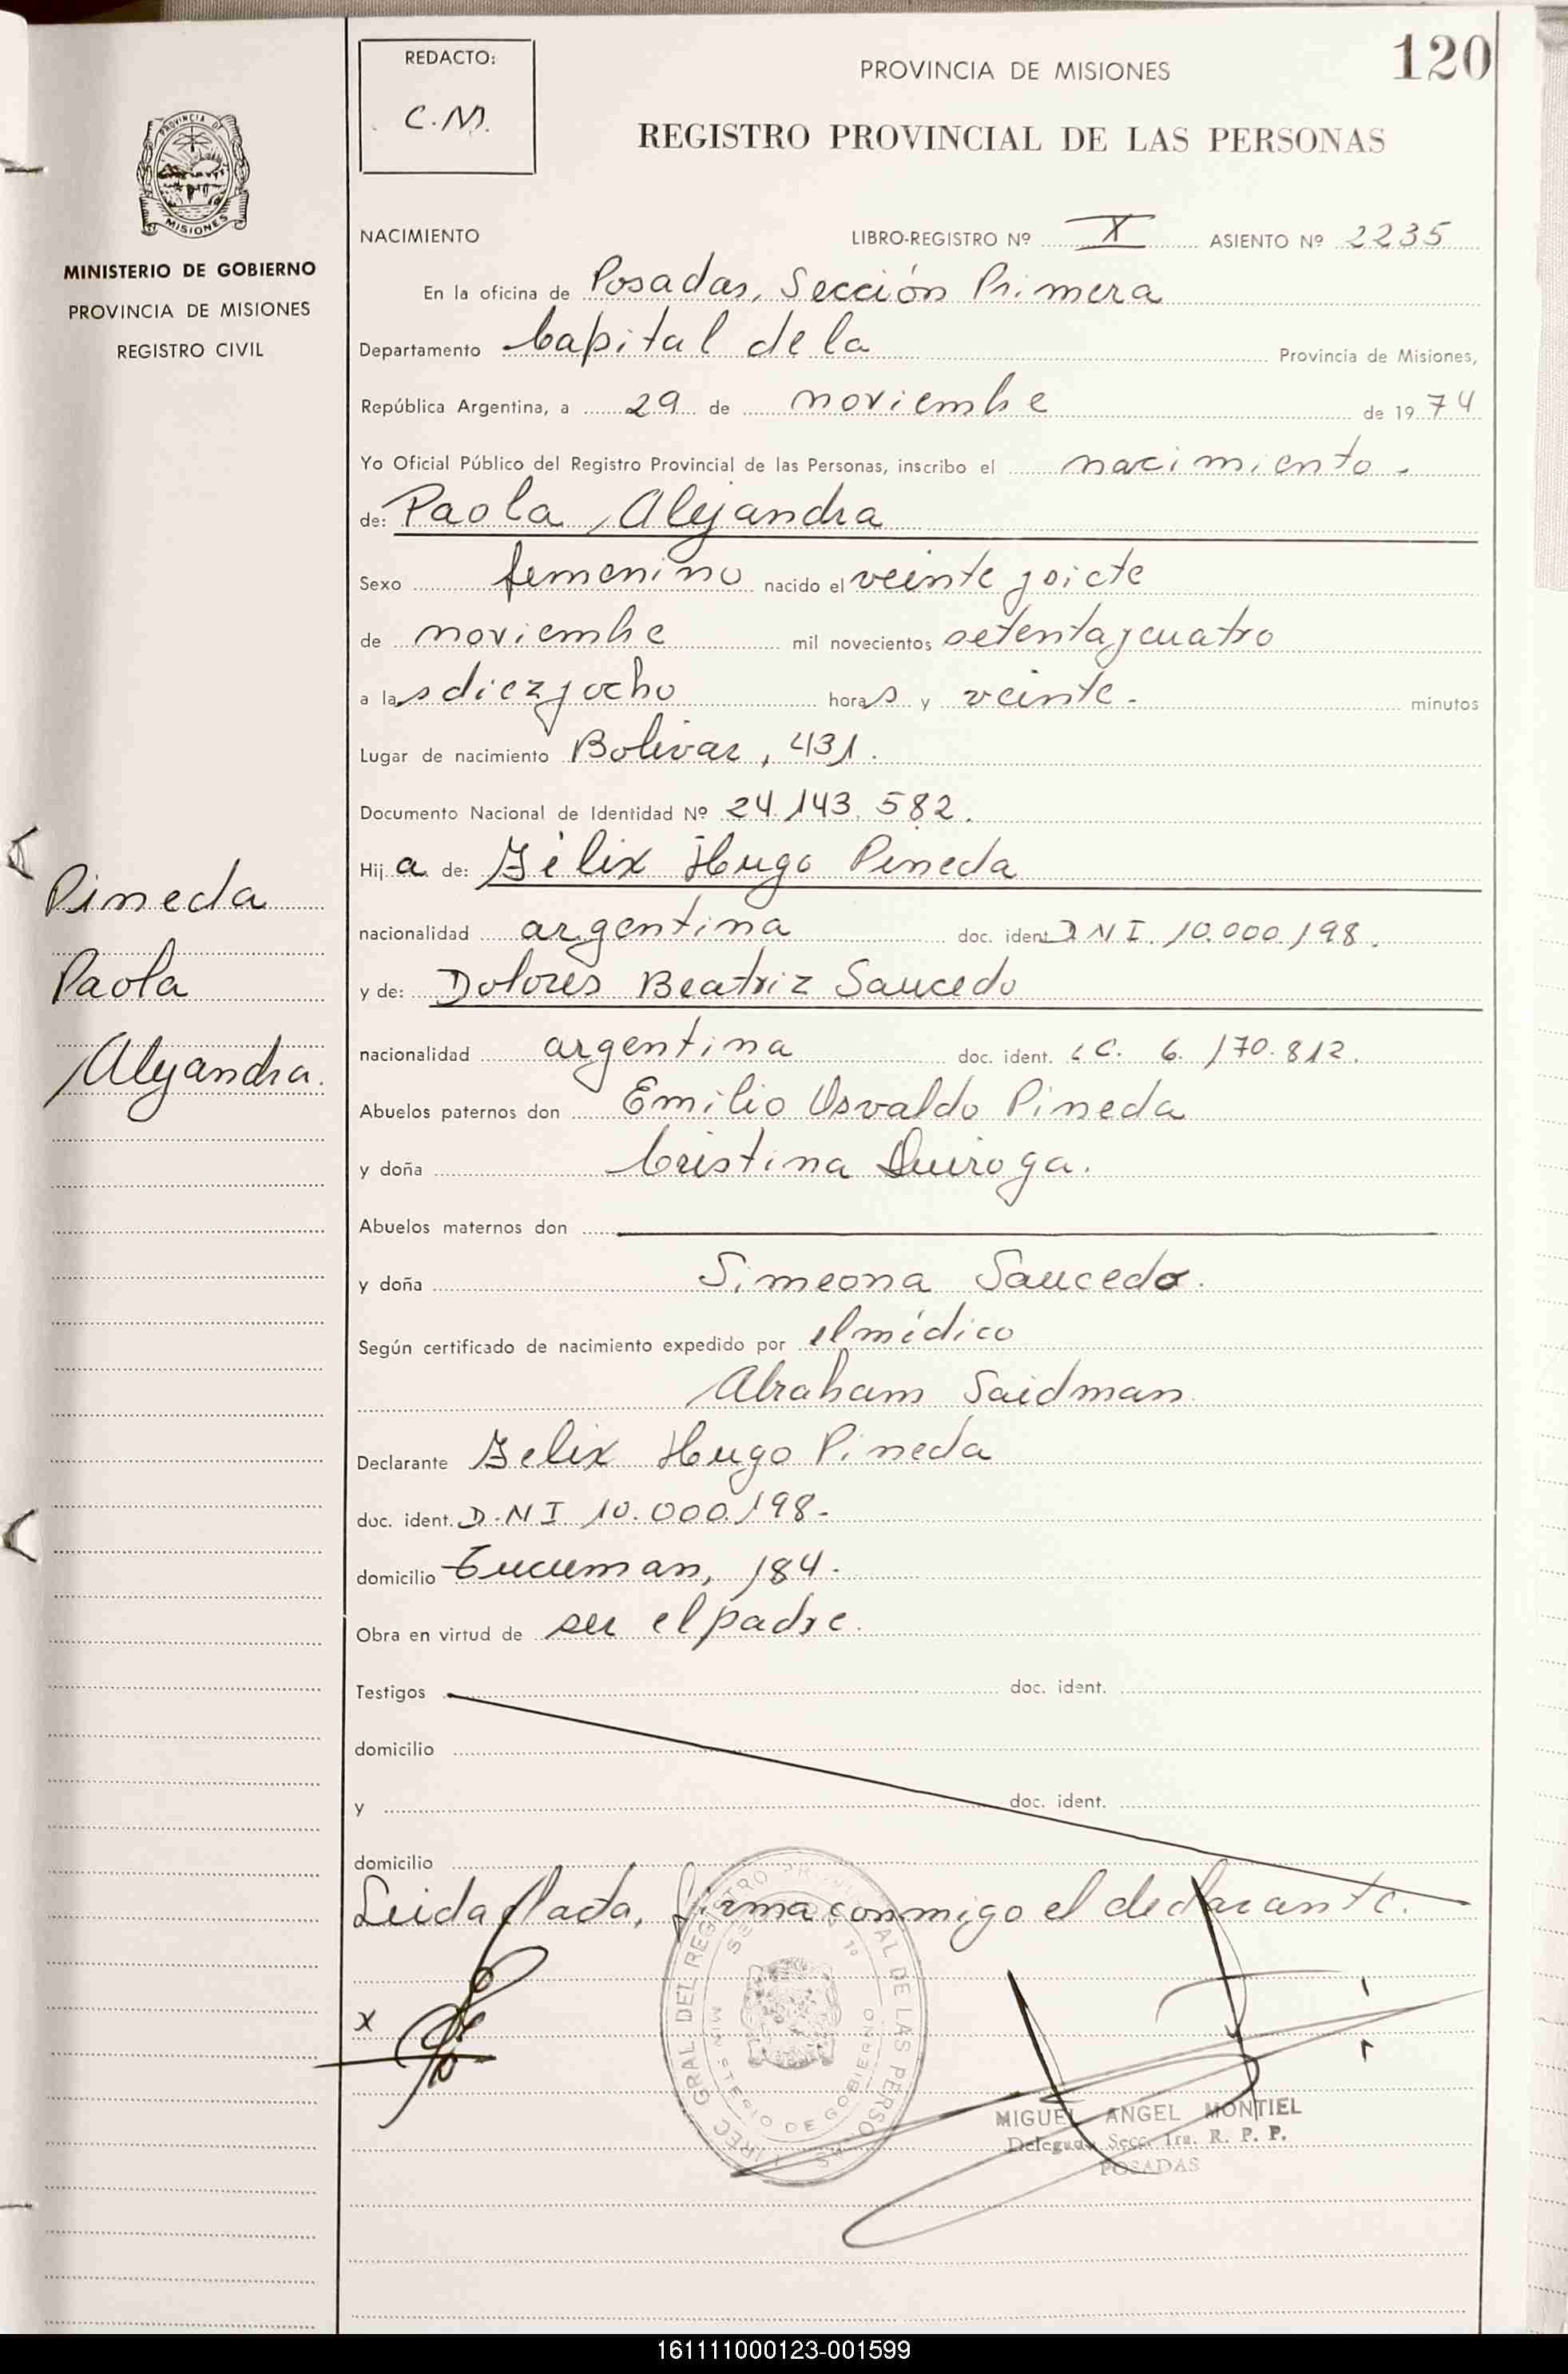 REDACTO:
C.M.
PROVINCIA DE MISIONES
120
REGISTRO PROVINCIAL DE LAS PERSONAS
PROVINCIA DE
MISIONES
MINISTERIO DE GOBIERNO
PROVINCIA DE MISIONES
REGISTRO CIVIL
NACIMIENTO LIBRO-REGISTRO Nº X ASIENTO Nº 2235
En la oficina de Posadas, Sección Primera
Departamento Capital de la Provincia de Misiones,
República Argentina, a 29 de noviembre de 1974
Yo Oficial Público del Registro Provincial de las Personas, inscribo el nacimiento.
de: Paola Alejandra
Sexo femenino nacido el veinte y siete
de noviembre mil novecientos setenta y cuatro
a las diez y ocho horas y veinte. minutos
Lugar de nacimiento Bolivar, 431.
Documento Nacional de Identidad Nº 24.143.582.
Hija de: Félix Hugo Pineda
nacionalidad argentina doc. ident. DNI. 10.000.198.
y de: Dolores Beatriz Saucedo
nacionalidad argentina doc. ident. LC. 6.170.812.
Abuelos paternos don Emilio Osvaldo Pineda
y doña Cristina Quiroga.
Abuelos maternos don
y doña Simeona Saucedo.
Según certificado de nacimiento expedido por el médico
Abraham Saidman.
Declarante Felix Hugo Pineda
doc. ident. D.N I 10.000.198.
domicilio Tucuman, 184.
Obra en virtud de ser el padre.
Testigos doc. ident.
domicilio
y doc. ident.
domicilio
Leida el acta, firma conmigo el declarante.
x
Pineda
Paola
Alejandra.
DIREC. GRAL DEL REGISTRO PROVINCIAL DE LAS PERSONAS
MINISTERIO DE GOBIERNO
MIGUEL ANGEL MONTIEL
Delegado Secc. 1ra. R. P. P.
POSADAS
161111000123-001599